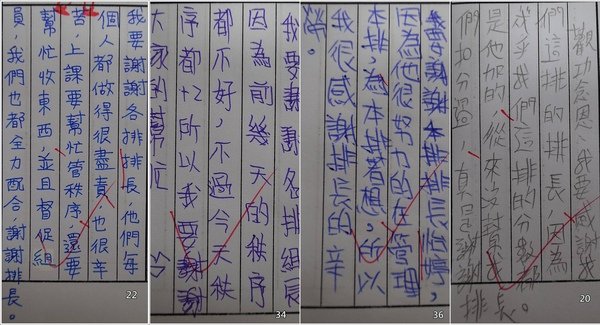 我要謝謝各排排長，他們每
個人都做得很盡責，也很辛
苦，上課要幫忙管秩序，還要
幫忙收東西，並且督促組
員，我們也都全力配合，謝謝排長。
22
我要謝謝各排組長
因為前幾天的秩序
都不好，不過今天秩
序都+2所以我要謝謝
大家的幫忙
34
我要謝謝本排排長怡婷，
因為他很努力的在管理
本排，為本排著想，所以
我很感謝排長的辛
勞。
36
觀功念恩，我要感謝我
們這排的排長，因為
幾乎我們這排的分數都
是他加的，從來沒幫我
們扣分過，真是謝謝
排長。
20